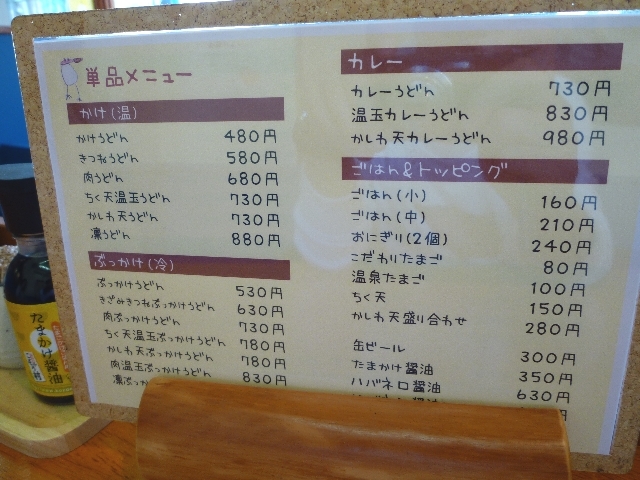 単品メニュー
かけ(温)
かけうどん 480円
きつねうどん 580円
肉うどん 680円
ちく天温玉うどん 730円
かしわ天うどん 730円
凛うどん 880円
ぶっかけ(冷)
ぶっかけうどん 530円
きざみきつねぶっかけうどん 630円
肉ぶっかけうどん 730円
ちく天温玉ぶっかけうどん 780円
かしわ天ぶっかけうどん 780円
肉温玉ぶっかけうどん 830円
凛ぶっか
カレー
カレーうどん 730円
温玉カレーうどん 830円
かしわ天カレーうどん 980円
ごはん&トッピング
ごはん(小) 160円
ごはん(中) 210円
おにぎり(2個) 240円
こだわりたまご 80円
温泉たまご 100円
ちく天 150円
かしわ天盛り合わせ 280円
缶ビール 300円
たまかけ醤油 350円
ハバネロ醤油 630円
たまかけ醤油